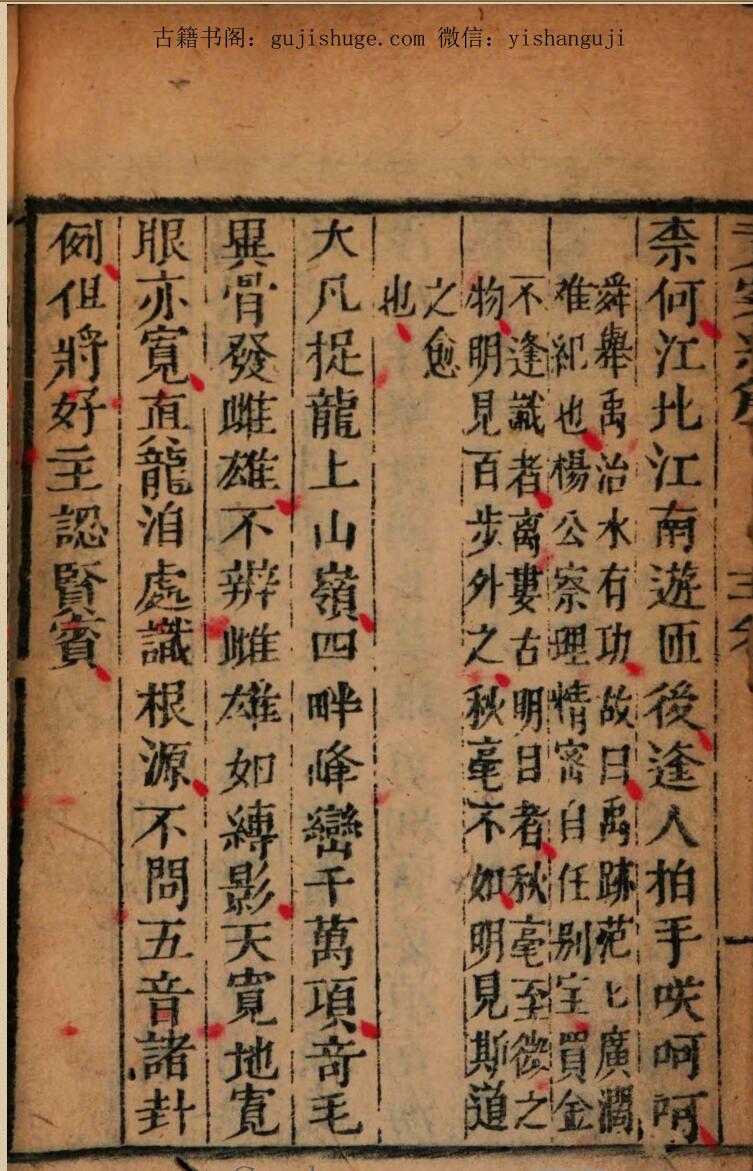 古籍书阁：gujishuge.com 微信：yishanguji
柰何江北江南遊匝後逢人拍手咲呵呵
舜舉禹治水有功故曰禹跡茫匕廣濶
难紀也楊公察理情密自任别宝買金
不逢識者离婁古明目者秋毫至微之
物明見百步外之秋毫不如明見斯道
之愈
也
大凡捉龍上山嶺四畔峰巒千萬項竒毛
異骨發雌雄不辨雌雄如縛影天寛地寛
眼亦寛直龍泊處識根源不問五音諸卦
例但將好主認賢賓